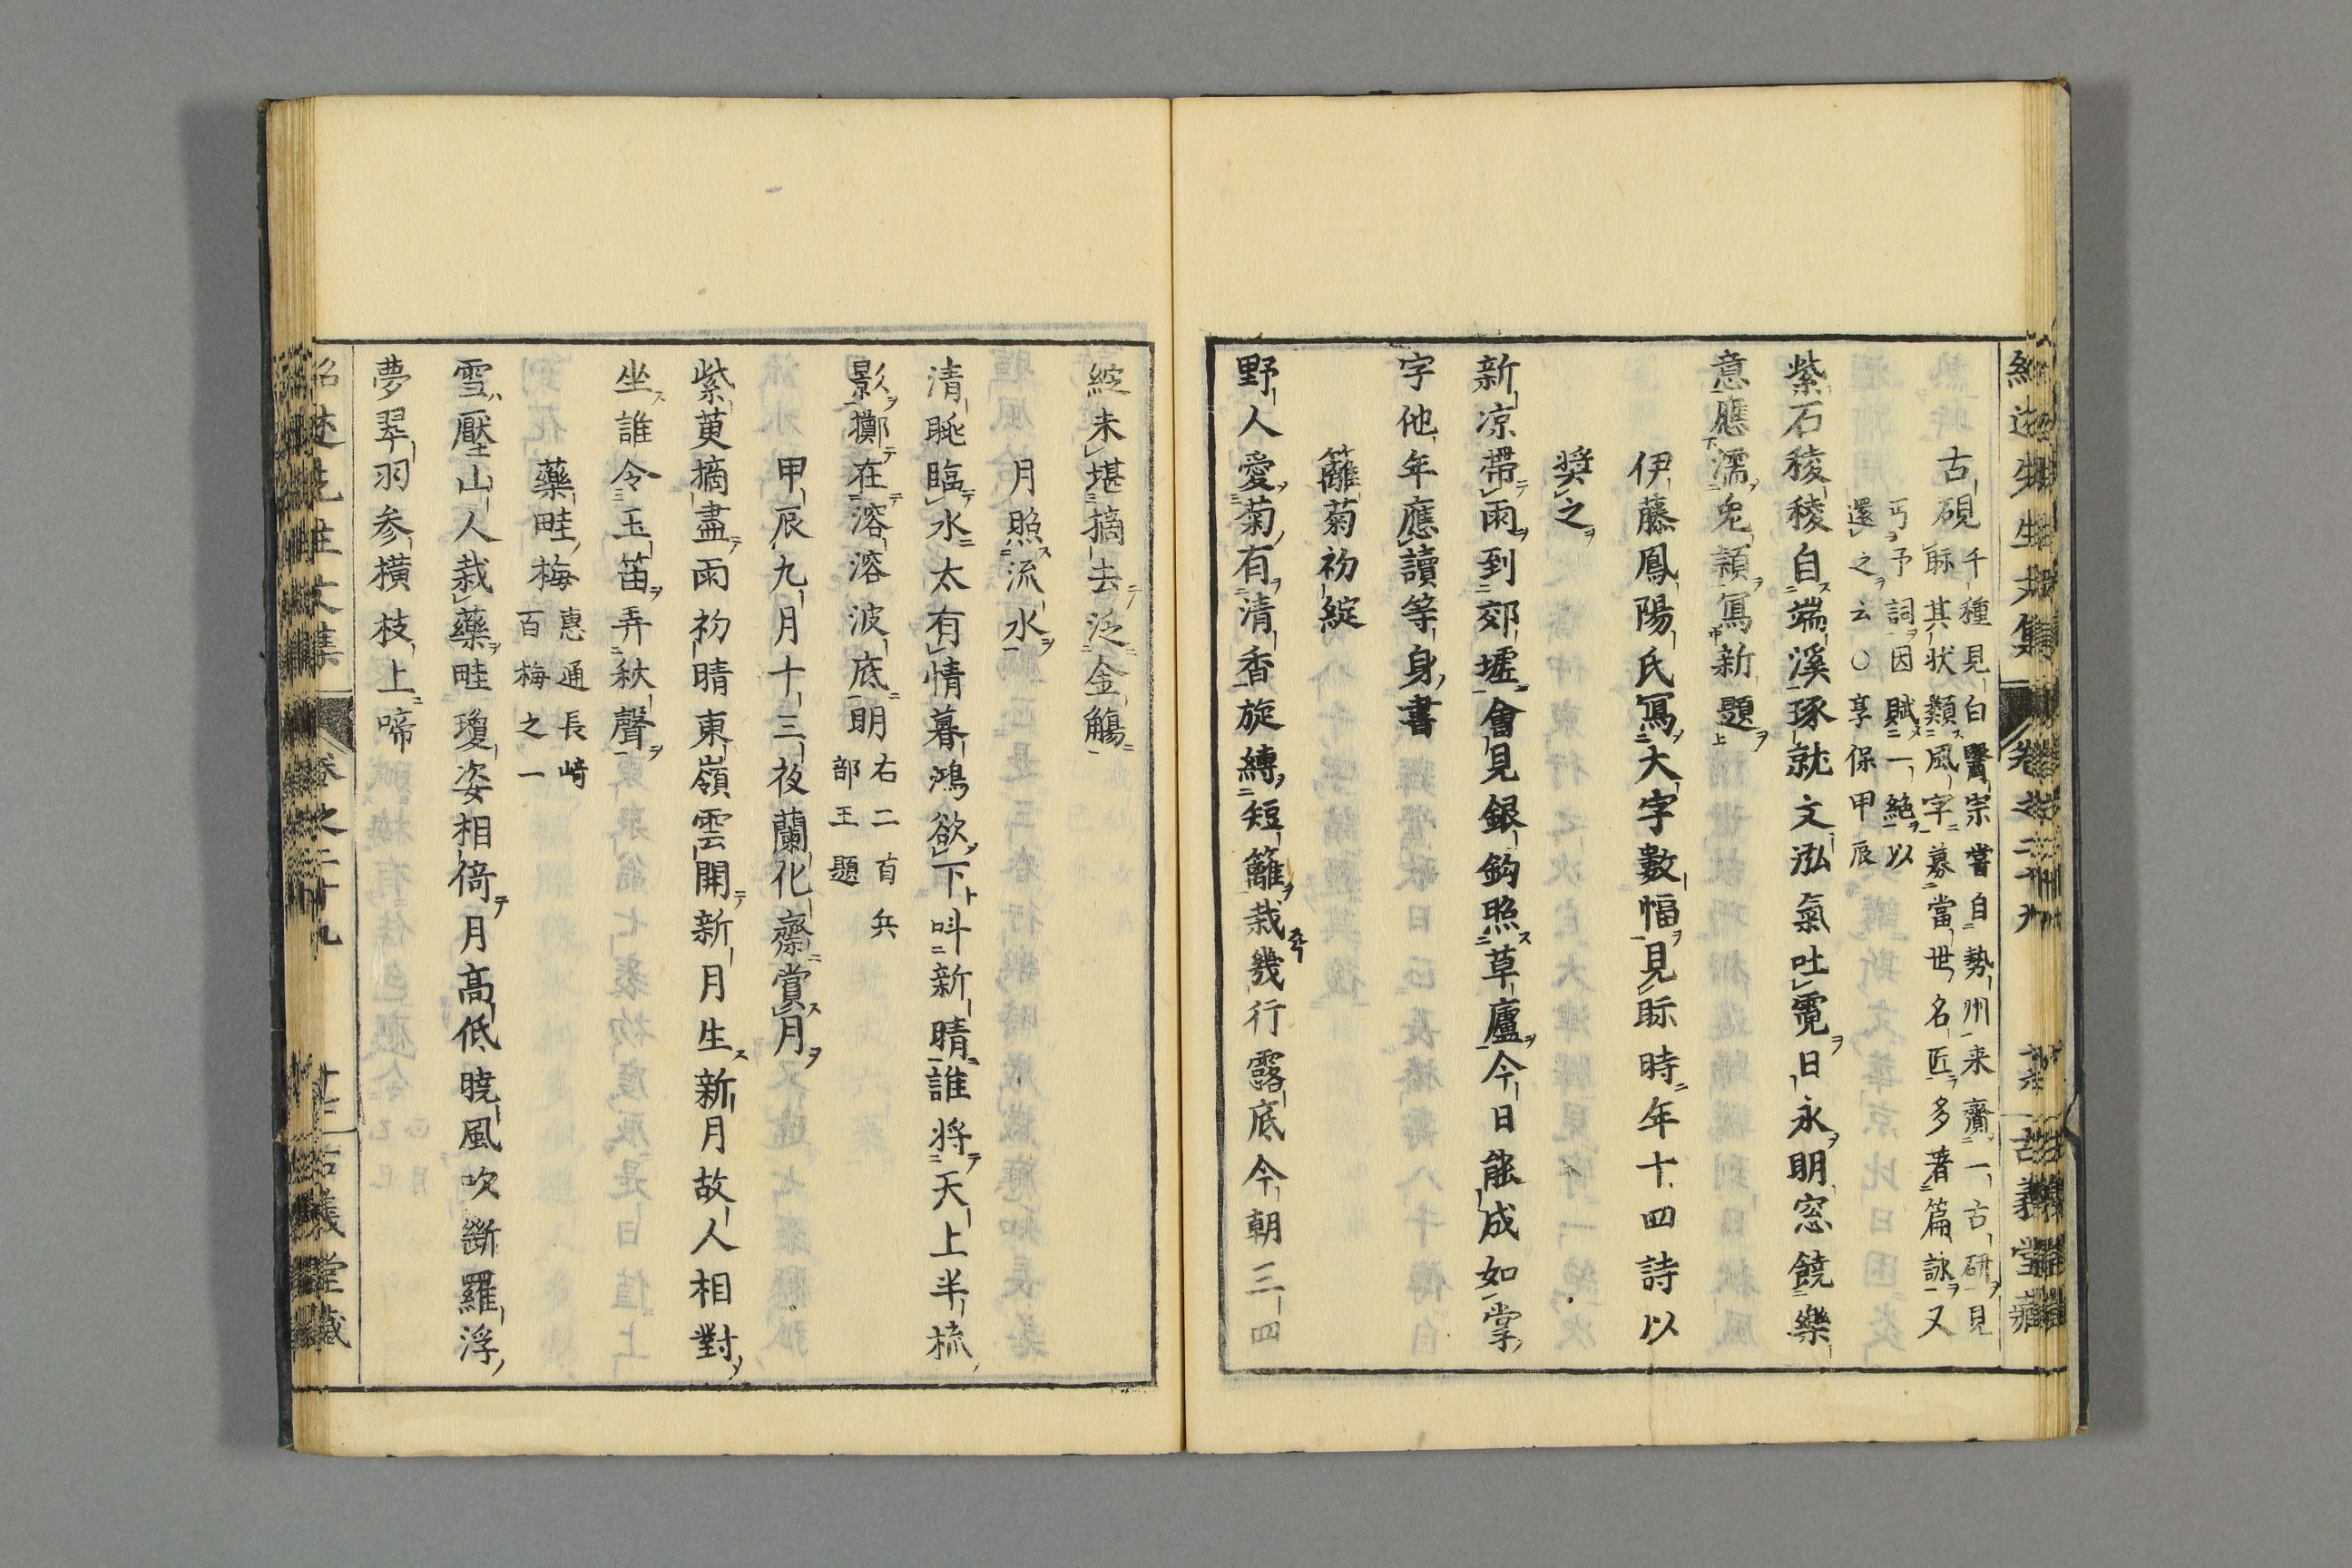 紹述先生文集 卷之二十九 古義堂藏
古硯 千種見白醫宗嘗自勢州来齎一古研見
眎其状類風字募當世名匠多著篇詠又
丐予詞因賦一絶以
還之云〇享保甲辰
紫石稜稜自端溪琢就文泓氣吐霓日永明窓饒樂
意應濡兔穎寫新題
伊藤鳳陽氏寫大字數幅見眎時年十四詩以
奨之
新凉帶雨到郊墟會見銀鈎照草廬今日能成如掌
字他年應讀等身書
籬菊初綻
野人愛菊有清香旋縛短籬栽幾行露底今朝三四
綻未堪摘去泛金觴
月照流水
清眺臨水太有情暮鴻欲下呌新晴誰将天上半梳
影擲在溶溶波底明 右二首兵
部王題
甲辰九月十三夜蘭化齋賞月
紫萸摘盡雨初晴東嶺雲開新月生新月故人相對
坐誰令玉笛弄秋聲
藥畦梅 惠通長崎
百梅之一
雪壓山人栽藥畦瓊姿相倚月高低曉風吹斷羅浮
夢翠羽参横枝上啼
紹述先生文集 卷之二十九 十三 古義堂藏